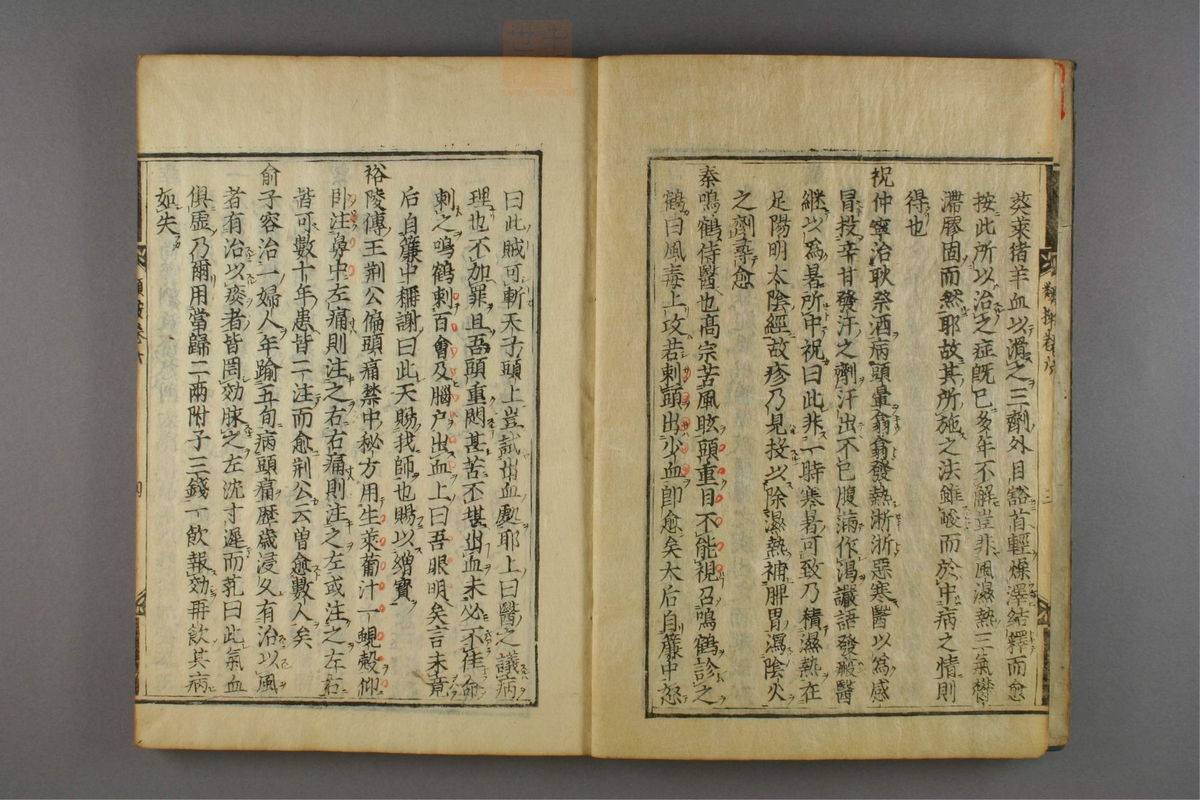 葵菜猪羊血以滑之三劑外目豁首輕燥澤結釋而愈
按此所以治之症既已多年不解豈非風濕熱三氣鬱
滯膠固而然耶故其所施之法雖峻而於中病之情則
得也
祝仲寧治耿祭酒病頭暈翕翕發熱淅淅惡寒醫以為感
冒投辛甘發汗之劑汗出不已腹滿作渴讝語發癍醫
繼以為暑所中祝曰此非一時寒暑可致乃積濕熱在
足陽明太陰經故疹乃見投以除濕熱補脾胃瀉陰火
之劑尋愈
秦鳴鶴侍醫也高宗苦風眩頭重目不能視召鳴鶴診之
鶴曰風毒上攻若刺頭出少血即愈矣太后自簾中怒
曰此賊可斬天子頭上豈試出血處耶上曰醫之議病
理也不加罪且吾頭重悶甚苦不堪出血未必不佳命
刺之鳴鶴刺百會及腦户出血上曰吾眼明矣言未竟
后自簾中稱謝曰此天賜我師也賜以繒寶
裕陵傳王荆公偏頭痛禁中秘方用生萊蔔汁一蜆殼仰
卧注鼻中左痛則注之右右痛則注之左或注之左右
皆可數十年患皆二注而愈荆公云曽愈數人矣
俞子容治一婦人年踰五旬病頭痛歷歲浸久有治以風
者有治以痰者皆罔効脉之左沈寸遲而芤曰此氣血
俱虛乃爾用當歸二兩附子三錢一飲報効再飲其病
如失